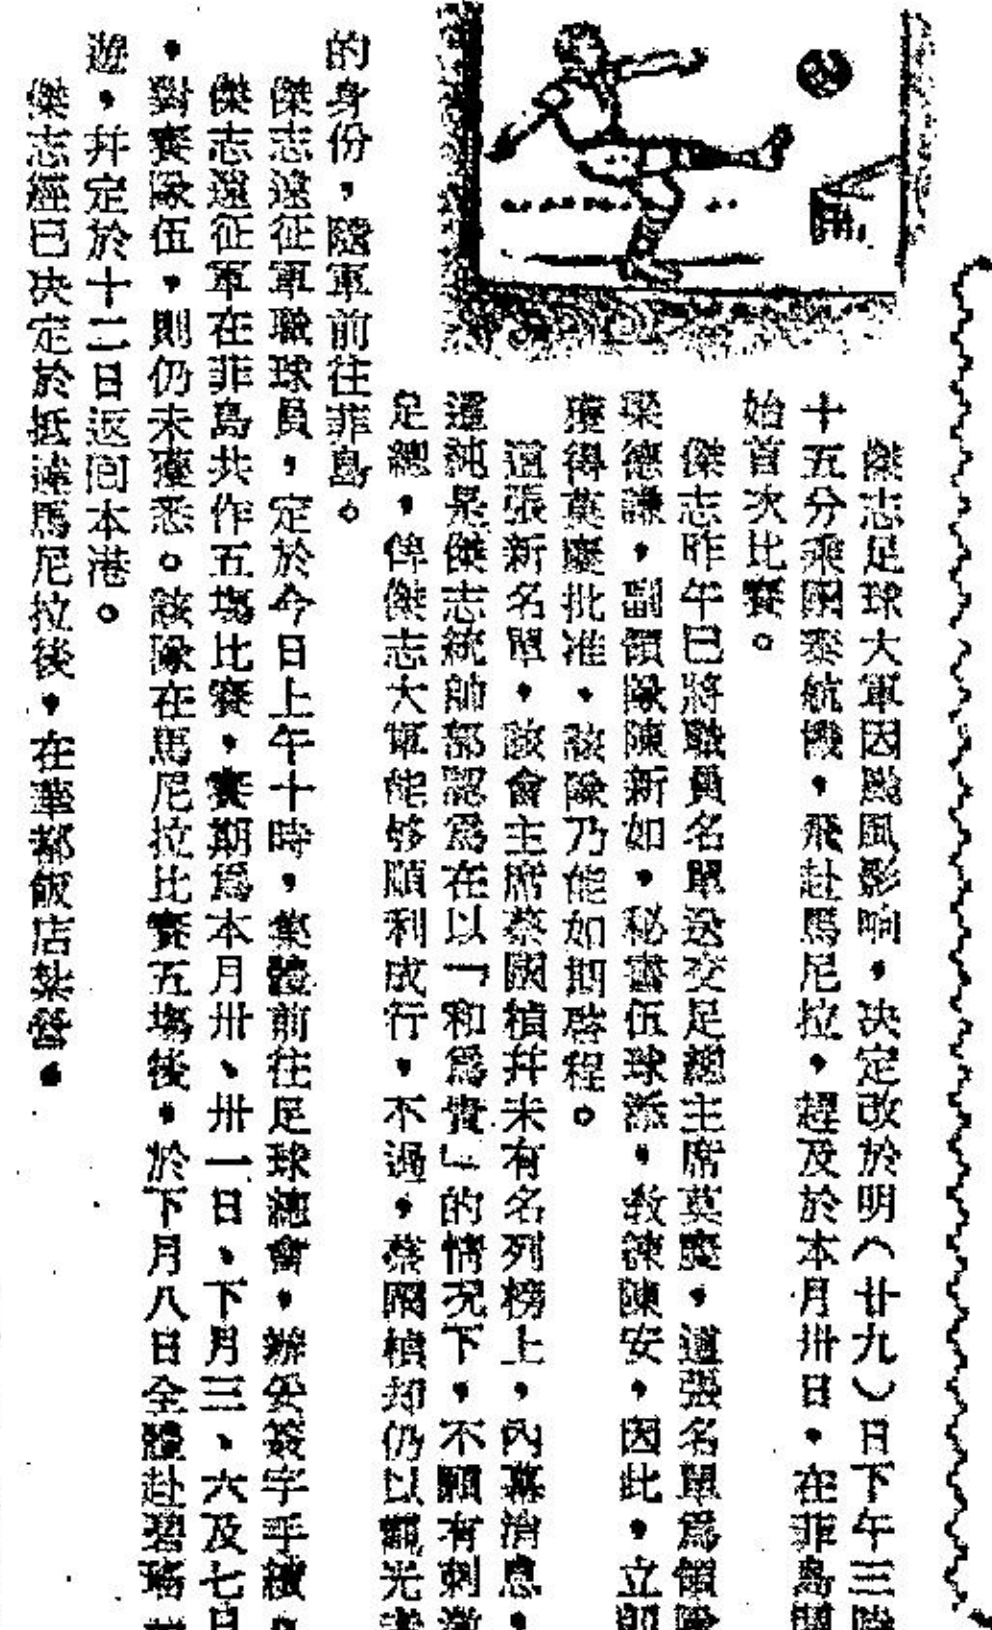 傑志足球大軍因颱風影响，决定改於明（廿九）日下午三時
十五分乘國泰航機，飛赴馬尼拉，趕及於本月卅日，在菲島開
始首次比賽。
傑志昨午已將職員名單送交足總主席莫慶，這張名單爲領隊
梁德謙，副領隊陳新如，秘書伍球添，教練陳安，因此，立卽
獲得莫慶批准，該隊乃能如期啓程。
這張新名單，該會主席蔡國楨幷未有名列榜上，內幕消息，
還純是傑志統帥部認爲在以「和爲貴」的情况下，不願有刺激
足總，俾傑志大軍能够順利成行，不過，蔡國楨却仍以觀光
的身份，隨軍前往菲島。
傑志遠征軍職球員，定於今日上午十時，集體前往足球總會，辦妥簽字手續，
傑志遠征軍在菲島共作五塲比賽，賽期爲本月卅、卅一日、下月三、六及七日
，對賽隊伍，則仍未獲悉。該隊在馬尼拉比賽五塲後，於下月八日全體赴碧瑤一
遊，幷定於十二日返回本港。
傑志經已决定於抵達馬尼拉後，在華都飯店紮營。